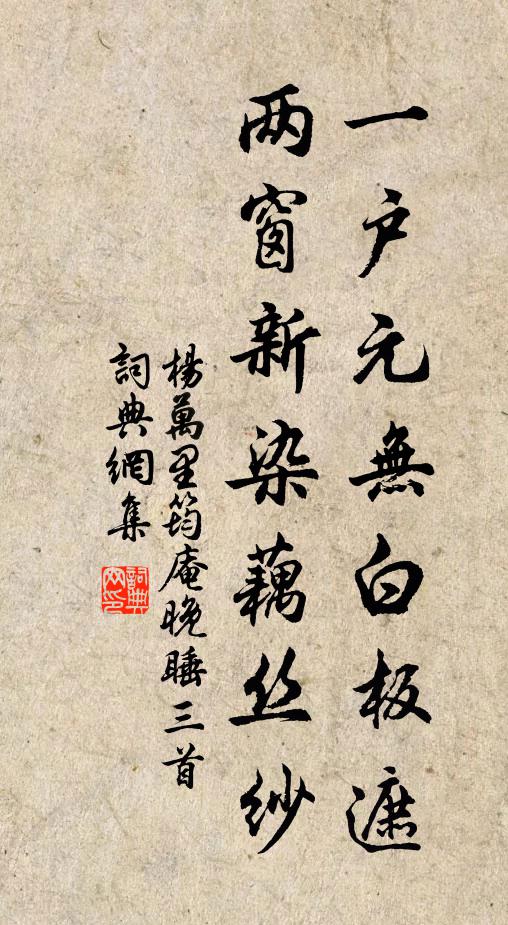 一户元無白板遮
两窗新染藕丝纱
楊萬里筠庵晚睡三首
詞典網集
詞典
网印